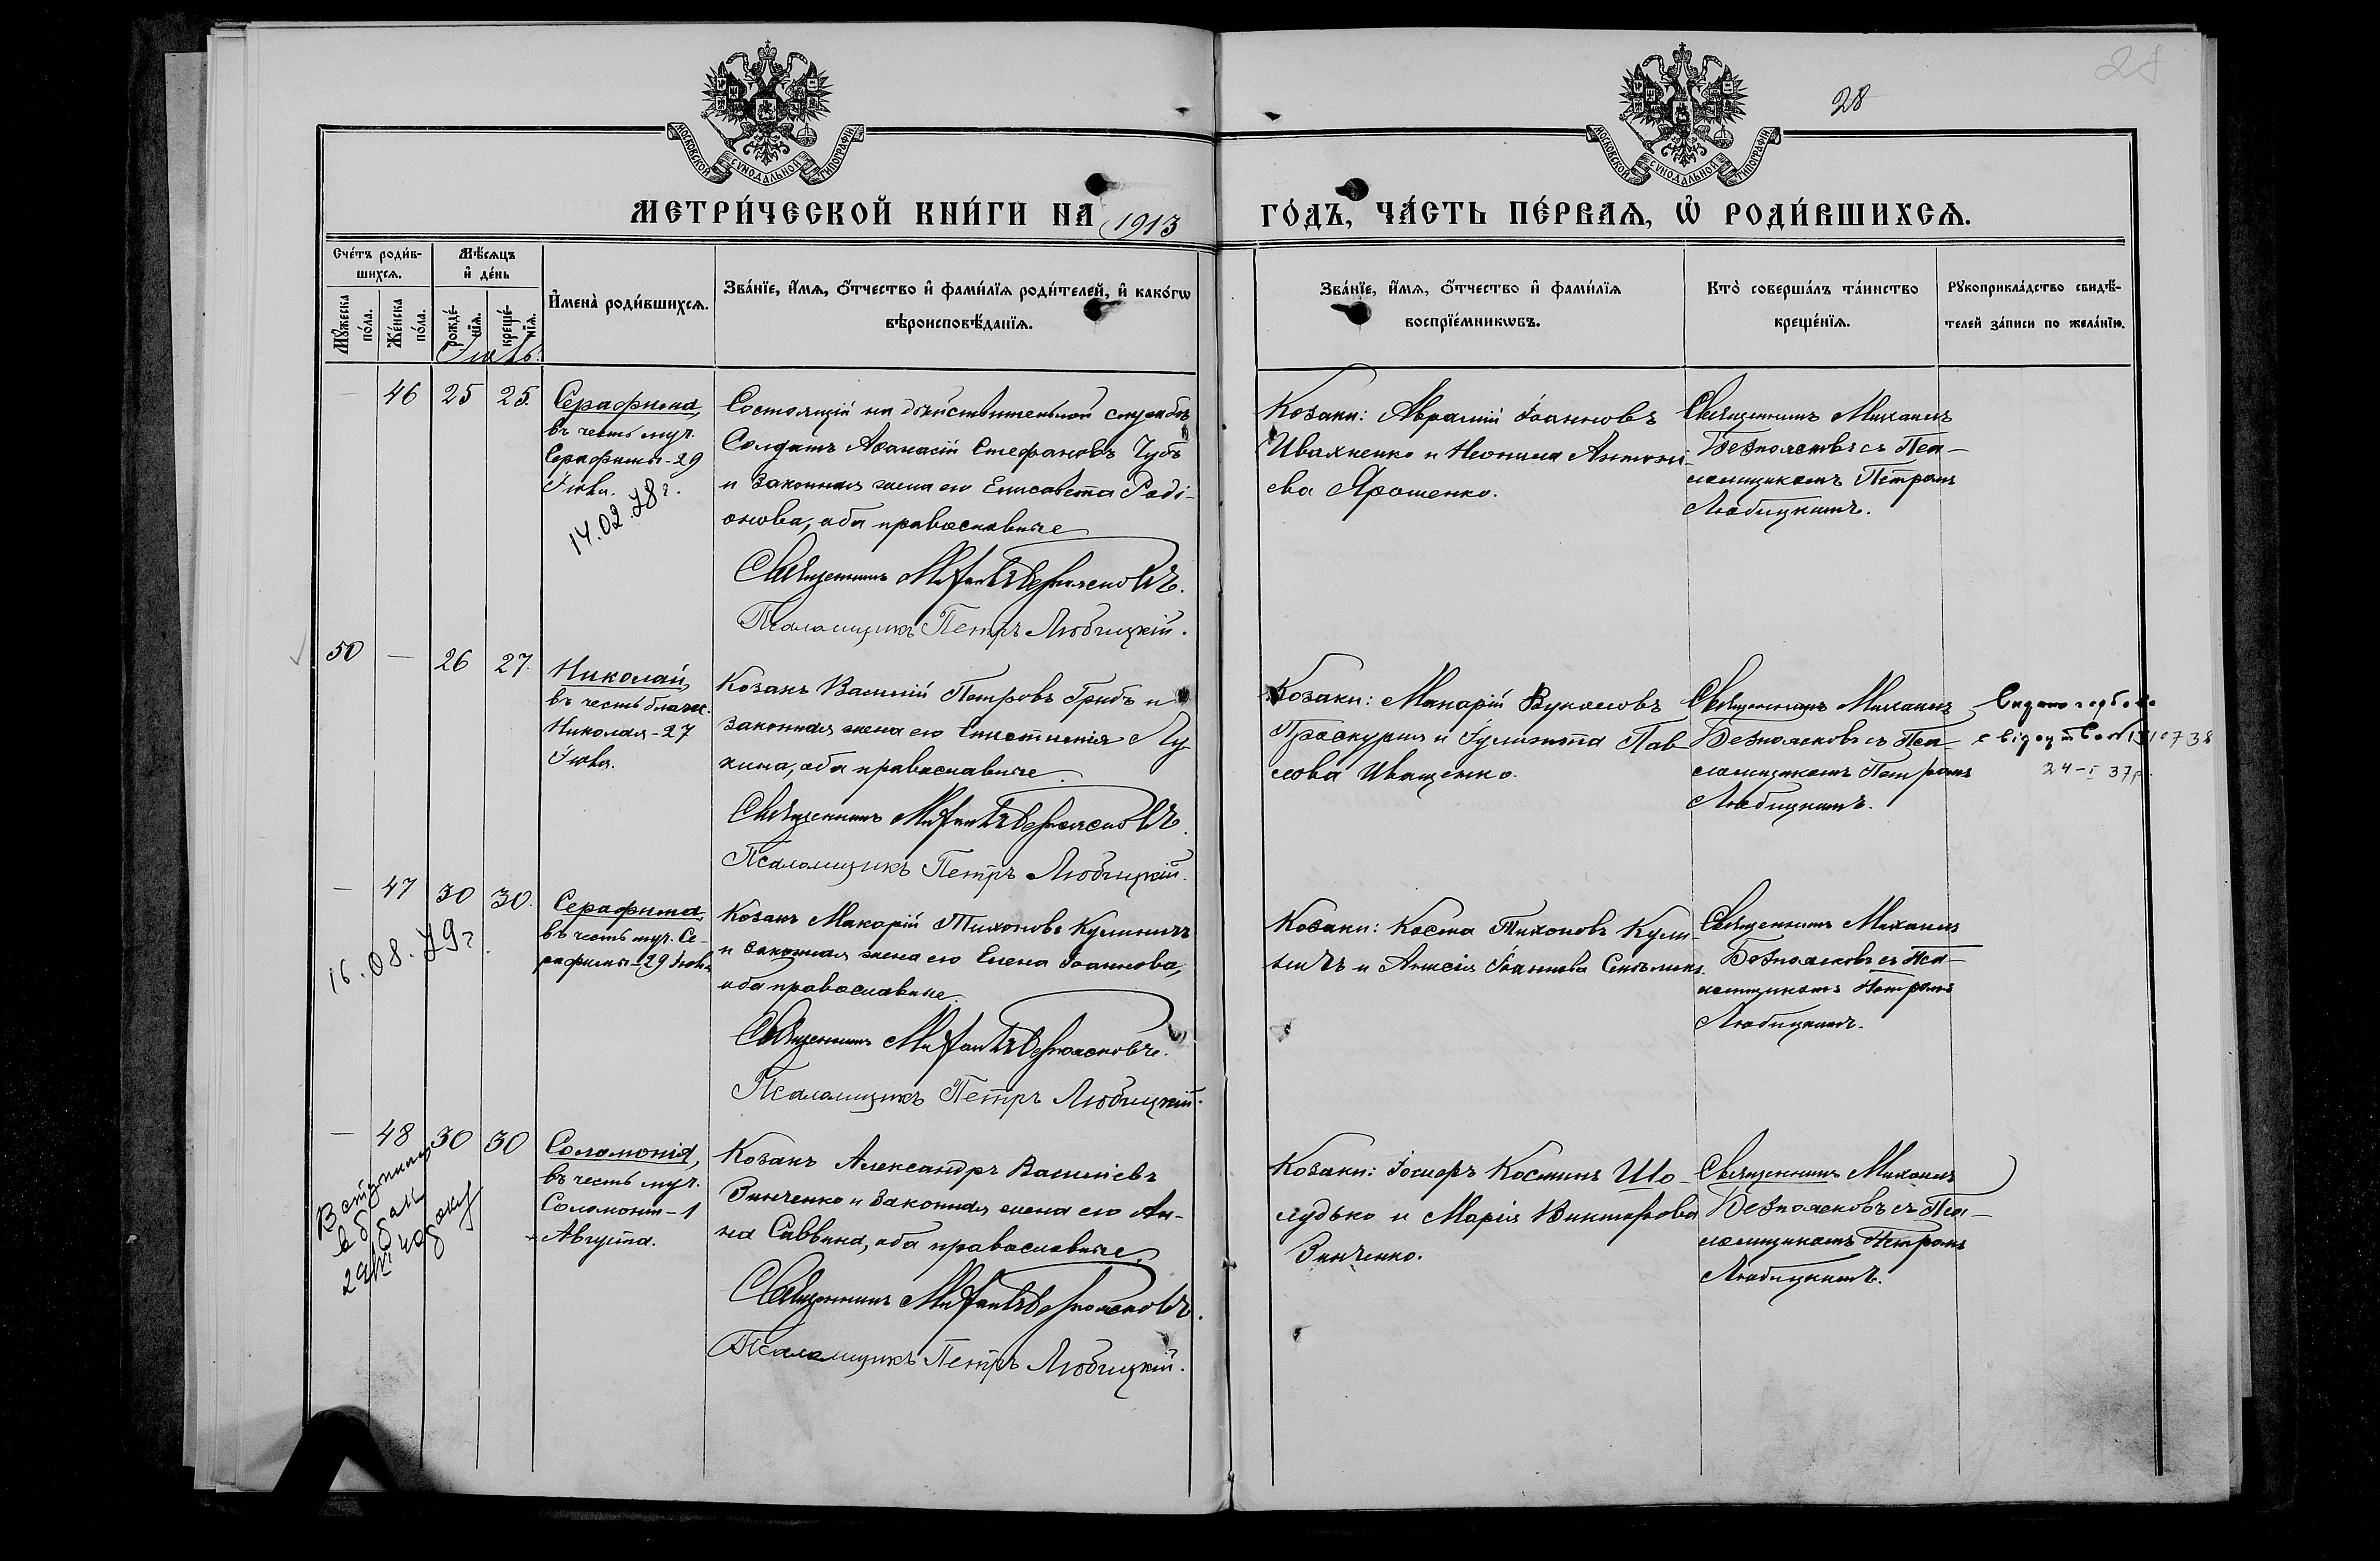 28
28
МОСКОВСКОЙ СУНОДАЛЬНОЙ ТИПОГРАФІИ
МОСКОВСКОЙ СУНОДАЛЬНОЙ ТИПОГРАФІИ
МЕТРИ́ЧЕСКОЙ КНИ́ГИ НА 1913
ГО́ДЪ, ЧА́СТЬ ПЕ́РВАѦ, Ѡ҆ РОДИ́ВШИХСѦ.
Сче́тъ роди́в-
шихсѧ.
Мꙋ́жеска
по́ла.
Же́нска
по́ла.
Мѣ́сѧцъ
и҆ де́нь
рожде́-
нїѧ.
креще́-
нїѧ.
Іюль.
И҆мена̀ роди́вшихсѧ.
Зва́нїе, и҆́мѧ, ѻ҆́тчество и҆ фами́лїѧ роди́телей, и҆ како́гѡ
вѣроисповѣ́данїѧ.
Зва́нїе, и҆́мѧ, ѻ҆́тчество и҆ фами́лїѧ
воспрїе́мникѡвъ.
Кто̀ соверша́лъ та́инство
креще́нїѧ.
Рꙋкоприкла́дство свидѣ́-
телей за́писи по жела́нїю.
— 46 25 25.
Серафима,
въ честь муч.
Серафимы - 29
Іюля.
14.02.78 г.
Состоящій на дѣйствительной службѣ
Солдатъ Аѳанасій Стефановъ Чубъ
и законная жена его Елисавета Роді-
онова, оба православные
Священникъ Михаилъ Безпоясковъ.
Псаломщикъ Петръ Любицкій.
Козаки: Аврамій Іоанновъ
Ивахненко и Неонила Антоні-
ева Ярошенко.
Священникъ Михаилъ
Безпоясковъ съ Пса-
ломщикомъ Петромъ
Любицкимъ.
50 — 26 27.
Николай,
въ честь блажен.
Николая - 27
Іюля.
Козакъ Василій Петровъ Грибъ и
законная жена его Епистимія Лу-
кина, оба православные.
Священникъ Михаилъ Безпоясковъ.
Псаломщикъ Петръ Любицкій.
Козаки: Макарій Вуколовъ
Проскурня и Гулитта Пав-
лова Иващенко.
Священникъ Михаилъ
Безпоясковъ съ Пса-
ломщикомъ Петромъ
Любицкимъ.
Видано
24-I 37р.
— 47 30 30.
16.08.79 г.
Серафима,
въ честь муч. Се-
рафимы - 29 Іюля
Козакъ Макарій Тихоновъ Кулиничъ
и законная жена его Елена Іоаннова,
оба православные.
Священникъ Михаилъ Безпоясковъ.
Псаломщикъ Петръ Любицкій.
Козаки: Косма Тихоновъ Кули-
ничъ и Анисія Іоаннова
Священникъ Михаилъ
Безпоясковъ съ Пса-
ломщикомъ Петромъ
Любицкимъ.
— 48 30 30
Соломонія,
въ честь муч.
Соломоніи - 1
Августа.
Козакъ Александръ Василіевъ
Зинченко и законная жена его Ан-
на Саввина, оба православные.
Священникъ Михаилъ Безпоясковъ.
Псаломщикъ Петръ Любицкій.
Козаки: Іосифъ Косминъ Шо-
лудько и Марія Викторова
Зинченко.
Священникъ Михаилъ
Безпоясковъ съ Пса-
ломщикомъ Петромъ
Любицкимъ.